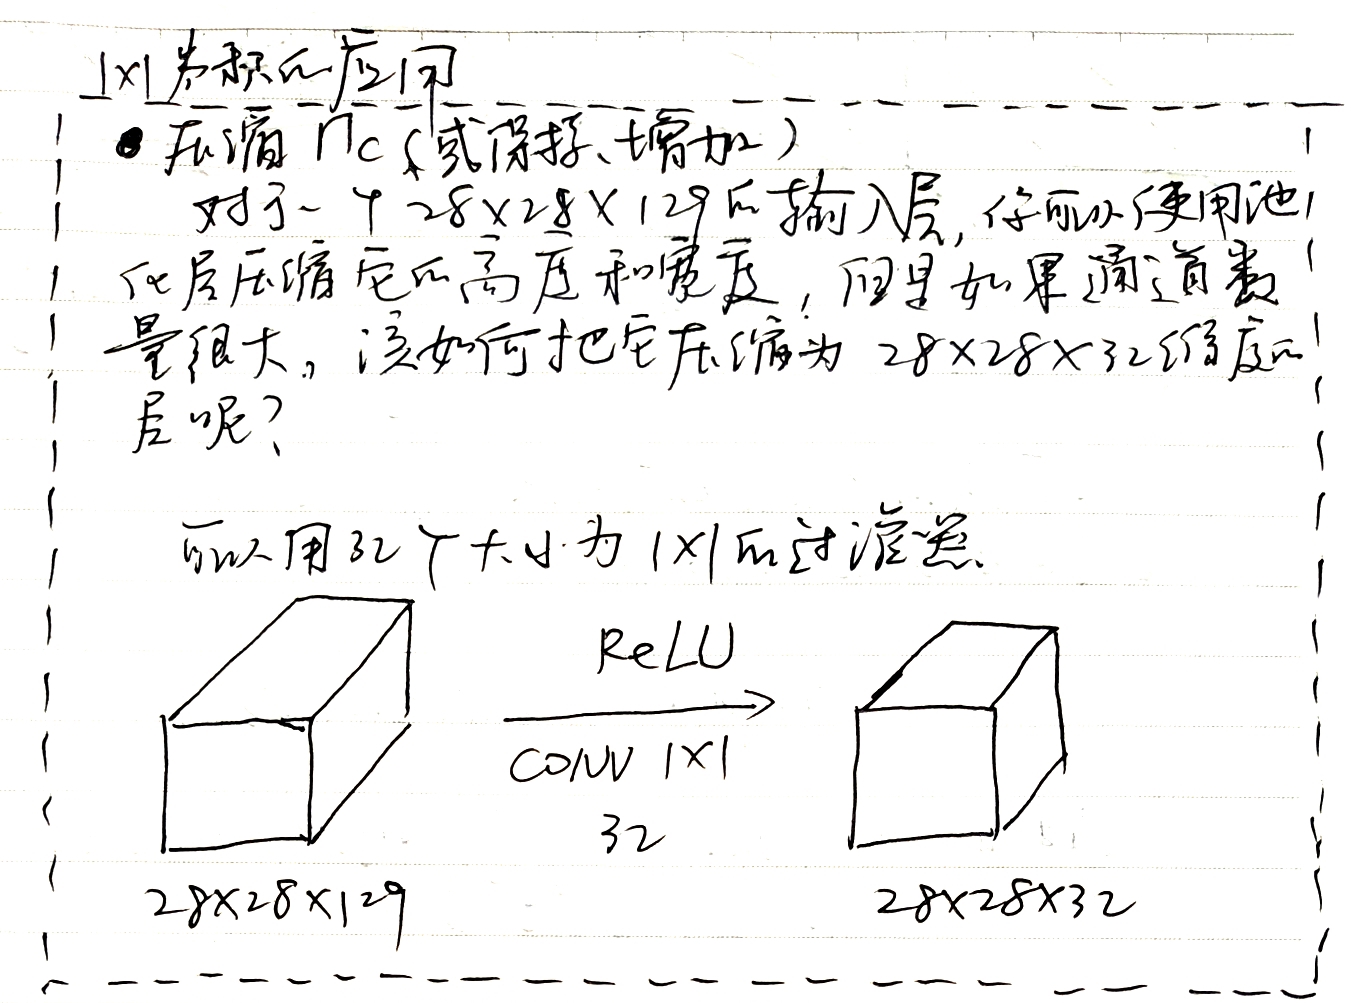 1×1卷积的应用
● 压缩 nc (或保持、增加)
对于一个 28×28×129的输入层,你可以使用池
化层压缩它的高度和宽度,但是如果通道数
量很大,该如何把它压缩为 28×28×32维度的
层呢?
可以用32个大小为1×1的过滤器
ReLU
CONV 1×1
32
28×28×129
28×28×32